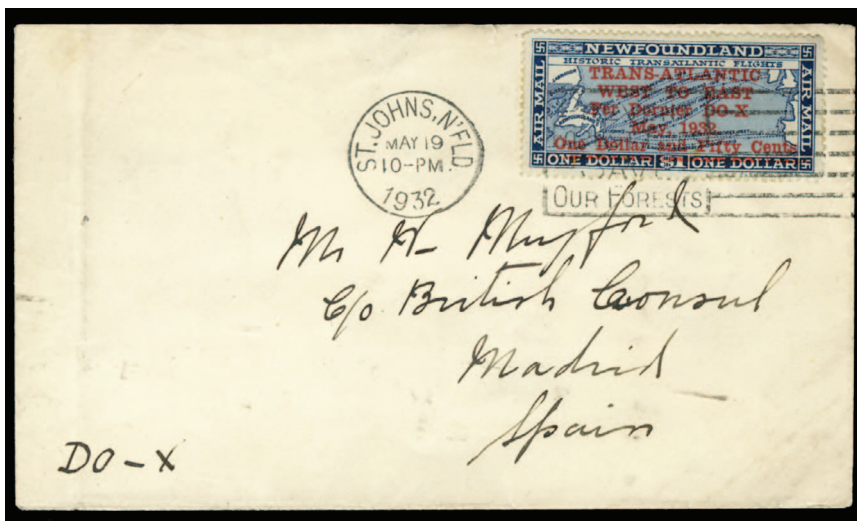 NEWFOUNDLAND
HISTORIC TRANSATLANTIC FLIGHTS
AIR MAIL
AIR MAIL
TRANS-ATLANTIC
WEST TO EAST
Per Dornier DO-X
May, 1932
One Dollar and Fifty Cents
ONE DOLLAR $1 ONE DOLLAR
ST. JOHNS, N'FLD
MAY 19
10-PM.
1932
SAVE
OUR FORESTS
Mr
c/o British Consul
Madrid
Spain
DO-X